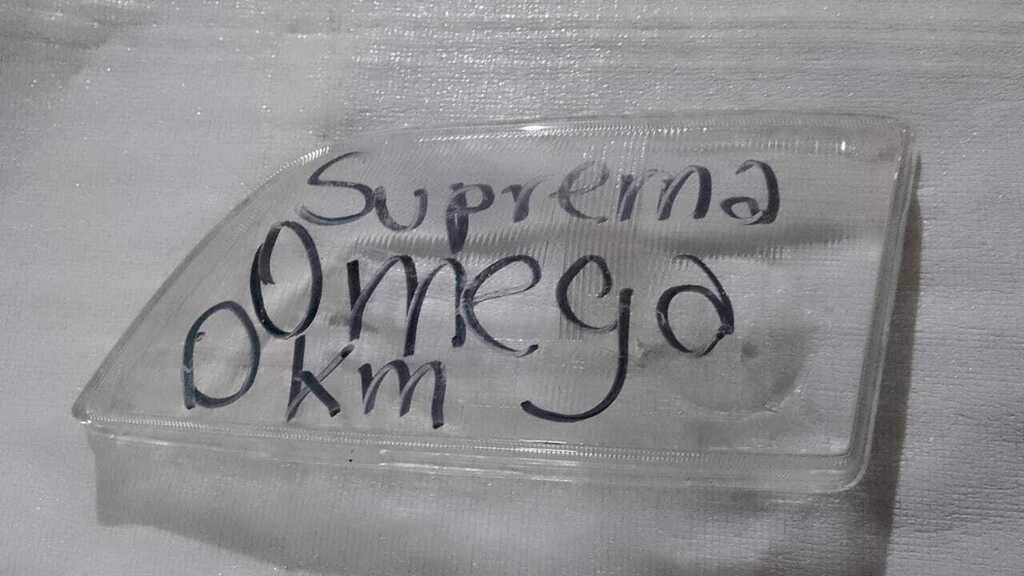 Suprema
Omega
0km